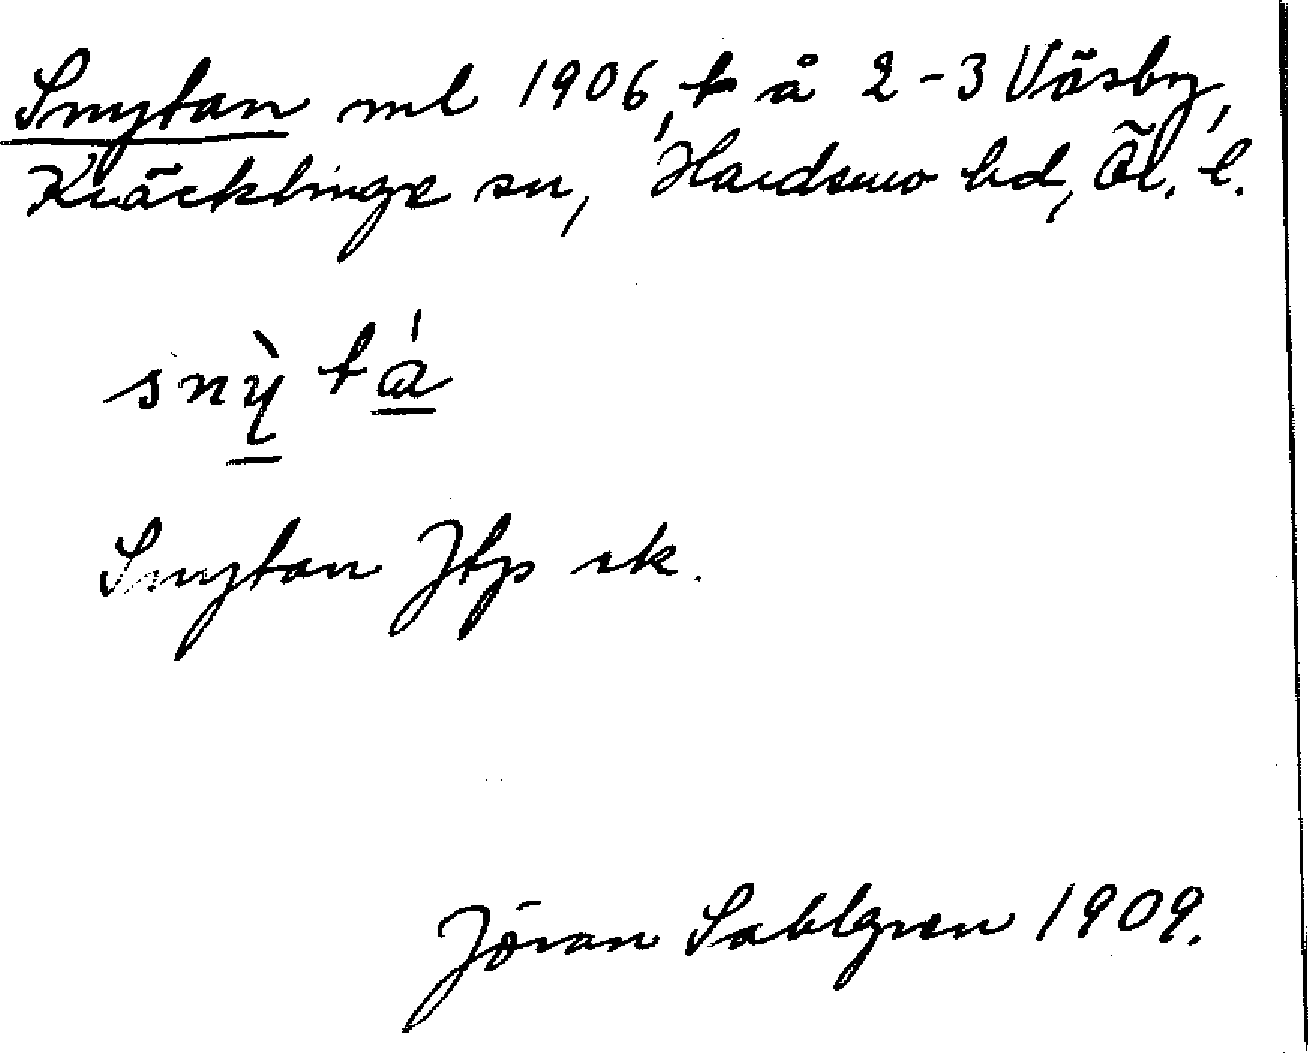 Snytan ml 1906, t å 2-3 Väsby,
Räcklinge sn, Runstens hd, Öl. l.
snỳtá
Snytan Jtp rk.
Jöran Sahlgren 1909.